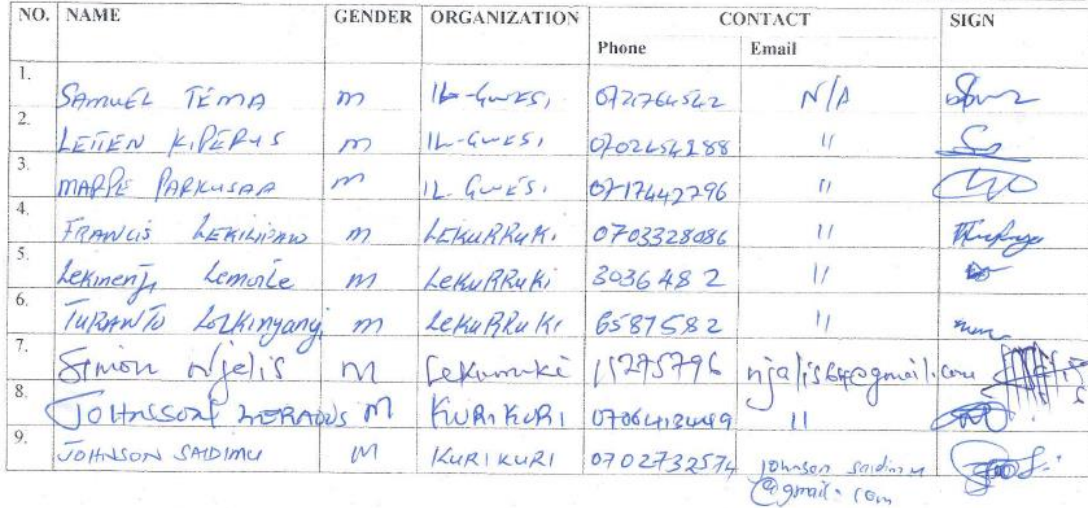 NO. NAME GENDER ORGANIZATION CONTACT SIGN
Phone Email
1. SAMUEL TEMA m IL-GWESI 0721764542 N/A
2. LEITEN KIPERUS m IL-GWESI 0702454288 "
3. MARPE PARKUSAA m IL-GWESI 0717442796 "
4. FRANCIS LEKILIPAW m LEKURRUKI 0703328086 "
5. Lekmenji Lemoile m LEKURRUKI 3036482 "
6. TURANTO LOLKinyanyi m LEKURRUKI 6587582 "
7. Simon Njelis M Lekurruki 11275796 njalis64@gmail.com
8. JOHNSSON LERADUS M KURIKURI 0706413449 "
9. JOHNSON SAIDIMU M KURIKURI 0702732574 johnson saidimu
@gmail.com